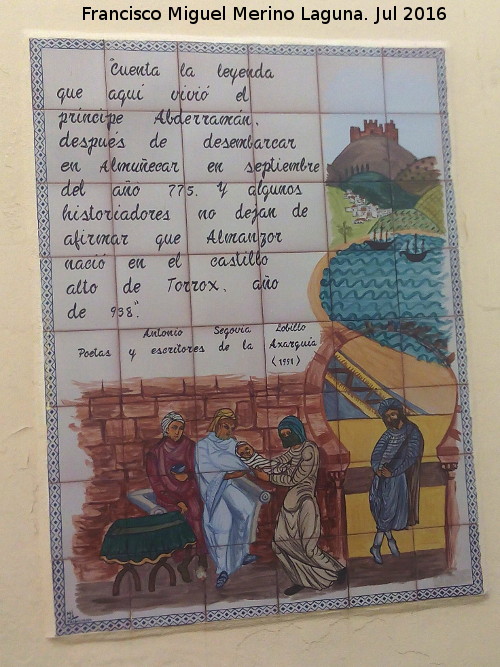 Francisco Miguel Merino Laguna. Jul 2016
"Cuenta la leyenda
que aquí vivió el
príncipe Abderraman.
después de desembarcar
en Almuñecar en septiembre
del año 775. Y algunos
historiadores no dejan de
afirmar que Almanzor
nació en el castillo
alto de Torrox, año
de 938".
Antonio Segovia Lobillo
Poetas y escritores de la Axarquía
(1991)